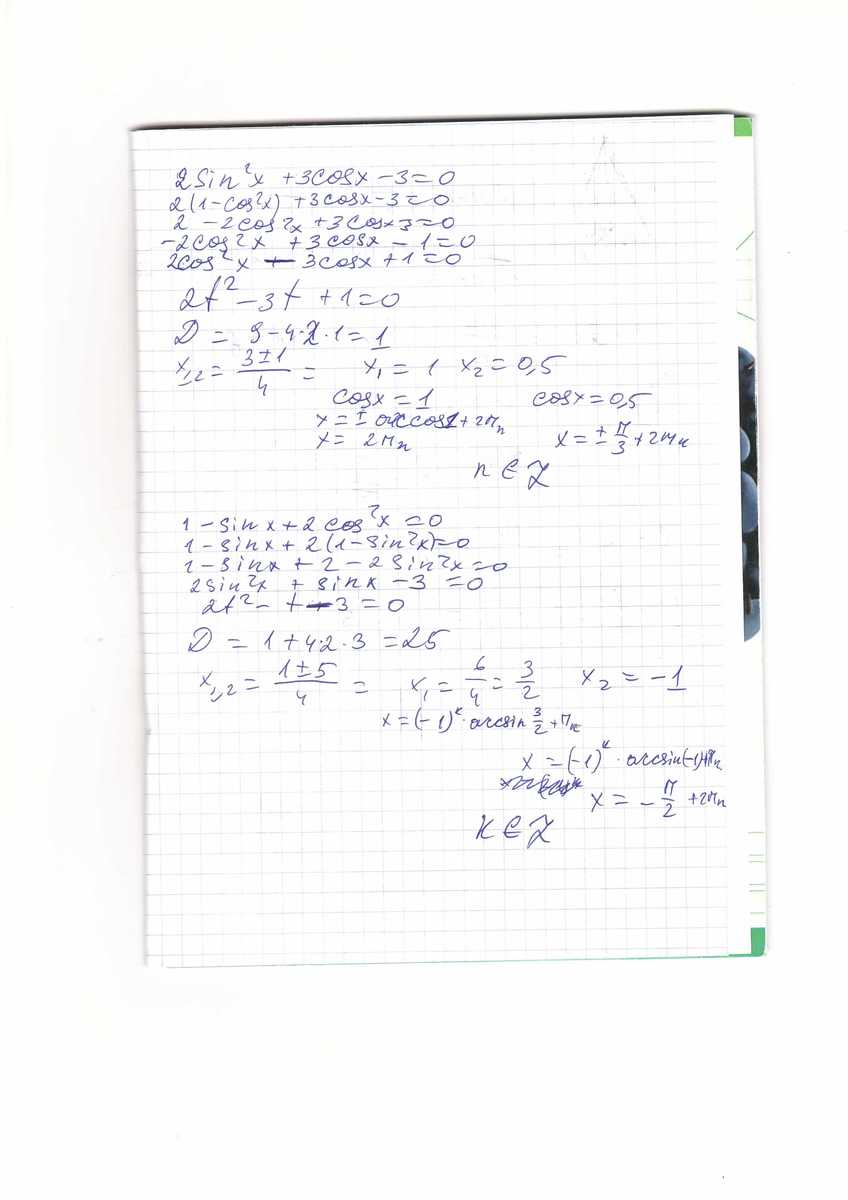 2sin²x + 3cosx - 3 = 0
2(1-cos²x) + 3cosx - 3 = 0
2 - 2cos²x + 3cosx 3 = 0
-2cos²x + 3cosx - 1 = 0
2cos²x - 3cosx + 1 = 0
2t² - 3t + 1 = 0
D = 9 - 4·2·1 = 1
x₁,₂ = (3±1)/4 = x₁ = 1 x₂ = 0,5
cosx = 1 cosx = 0,5
x = ± arccos1 + 2πn
x = 2πn x = ± π/3 + 2πк
n ∈ Z
1 - sinx + 2cos²x = 0
1 - sinx + 2(1-sin²x) = 0
1 - sinx + 2 - 2sin²x = 0
2sin²x + sinx - 3 = 0
2t² - t - 3 = 0
D = 1 + 4·2·3 = 25
x₁,₂ = (1±5)/4 = x₁ = 6/4 = 3/2 x₂ = -1
x = (-1)ᴷ · arcsin 3/2 + πк
x = (-1)ᴷ · arcsin(-1) + πn
x = - π/2 + 2πn
K ∈ Z